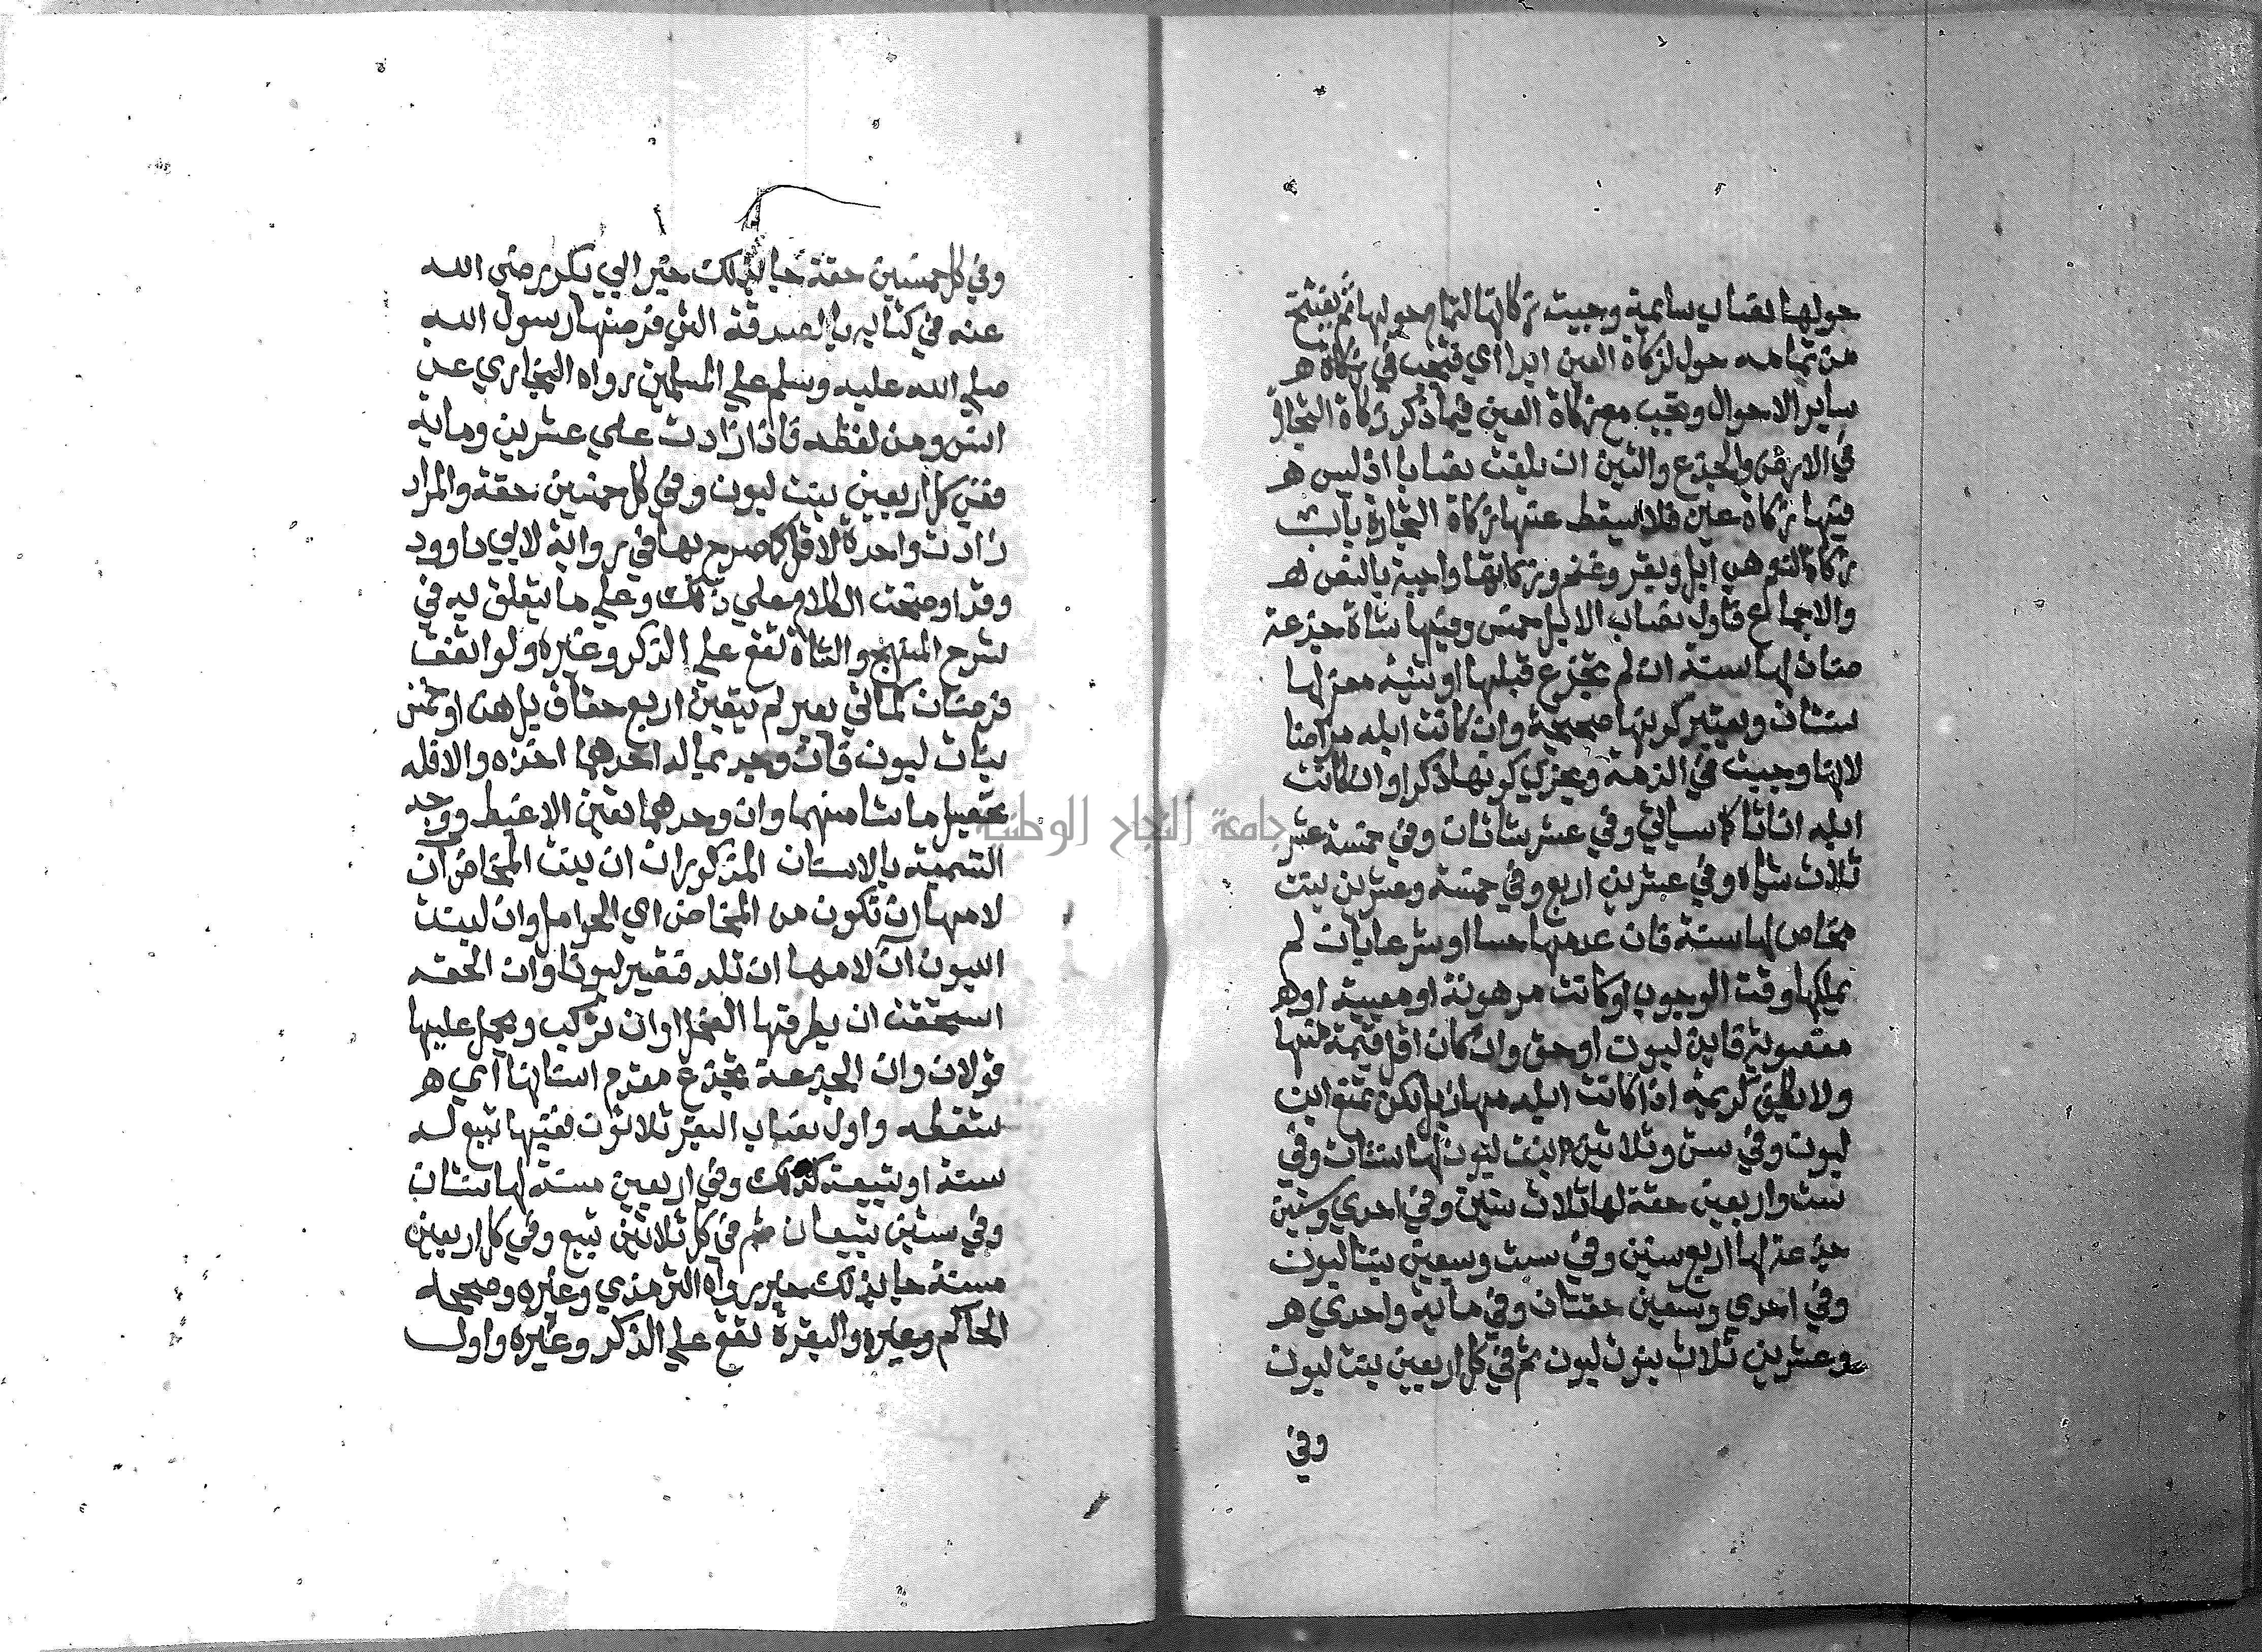 حولها نصاب سايمة وجبت زكاتها لتمام حولها ثم يفتتح
من تمامه حول لزكاة العين ابدا اي فتجب في زكاة ه
ساير الاحوال وتجب مع زكاة العين فيما ذكر زكاة التجارة
في الارض والجذع والتبن ان بلغت نصابا اذ ليس ه
فيها زكاة عين فلا تسقط عنها زكاة التجارة باب
زكاة النعم هي ابل وبقر وغنم وزكاتها واجبة بالنص ه
والاجماع فاول نصاب الابل خمس وفيها شاة جذعة
ضان لها سنة ان لم تجذع قبلها او ثنية معز لها
سنتان ويعتبر كونها صحيحة وان كانت ابله مراضا
لانها وجبت في الذمة ويجزي كونها ذكرا وان كانت
ابله اناثا كما سياتي وفي عشر شاتان وفي خمسة عشر
ثلاث شياه وفي عشرين اربع وفي خمسة وعشرين بنت
مخاض لها سنة فان عدمها حسا او شرعا بان لم
يملكها وقت الوجوب او كانت مرهونة او معيبة او ه
مغصوبة فابن لبون او حق وان كان اقل قيمة منها
ولا يكلف كريمة اذا كانت ابله مهازيل لكن تمنع ابن
لبون وفي ست وثلاثين بنت لبون لها سنتان وفي
ست واربعين حقة لها ثلاث سنين وفي احدي وستين
جذعة لها اربع سنين وفي ست وسبعين بنتا لبون
وفي احدي وتسعين حقتان وفي ماية واحدي ه
وعشرين ثلاث بنون لبون ثم في كل اربعين بنت لبون
وفي
وفي كل خمسين حقة جا بذلك خبر ابي بكر رضي الله
عنه في كتابه بالصدقة التي فرضها رسول الله
صلي الله عليه وسلم علي المسلمين رواه البخاري عن
انس ومن لفظه فاذا زادت علي عشرين وماية
ففي كل اربعين بنت لبون وفي كل خمسين حقة والمراد
زادت واحدة لا اقل كما صرح بها في رواية لابي داوود
وقد اوضحت الكلام علي ذلك وعلي ما يتعلق به في
شرح المنهج والشاة تقع علي الذكر وغيره ولو اتفق
فرضان كمائتي بعير لم يتعين اربع حقاق بل هن او خمس
بنات لبون فان وجد بماله احدهما اخذه والا فله
تحصيل ما شا منهما وان وجدهما تعين الاغبط ووجه
التسمية بالاسنان المذكورات ان بنت المخاض آن
لامها ان تكون من المخاض اي الحوامل وان لبنت
اللبون آن لامها ان تلد فتصير لبونا وان الحقه
استحقت ان يطرقها الفحل او ان تركب ويحمل عليها
قولان وان الجذعة تجذع مقدم اسنانها اي ه
تسقطه واول نصاب البقر ثلاثون ففيها تبيع له
سنة او تبيعة كذلك وفي اربعين مسنة لها سنتان
وفي ستين تبيعان ثم في كل ثلاثين تبيع وفي كل اربعين
مسنة جا بذلك خبر رواه الترمذي وغيره وصححه
الحاكم وغيره والبقرة تقع علي الذكر وغيره واول
جامعة النجاح الوطنية